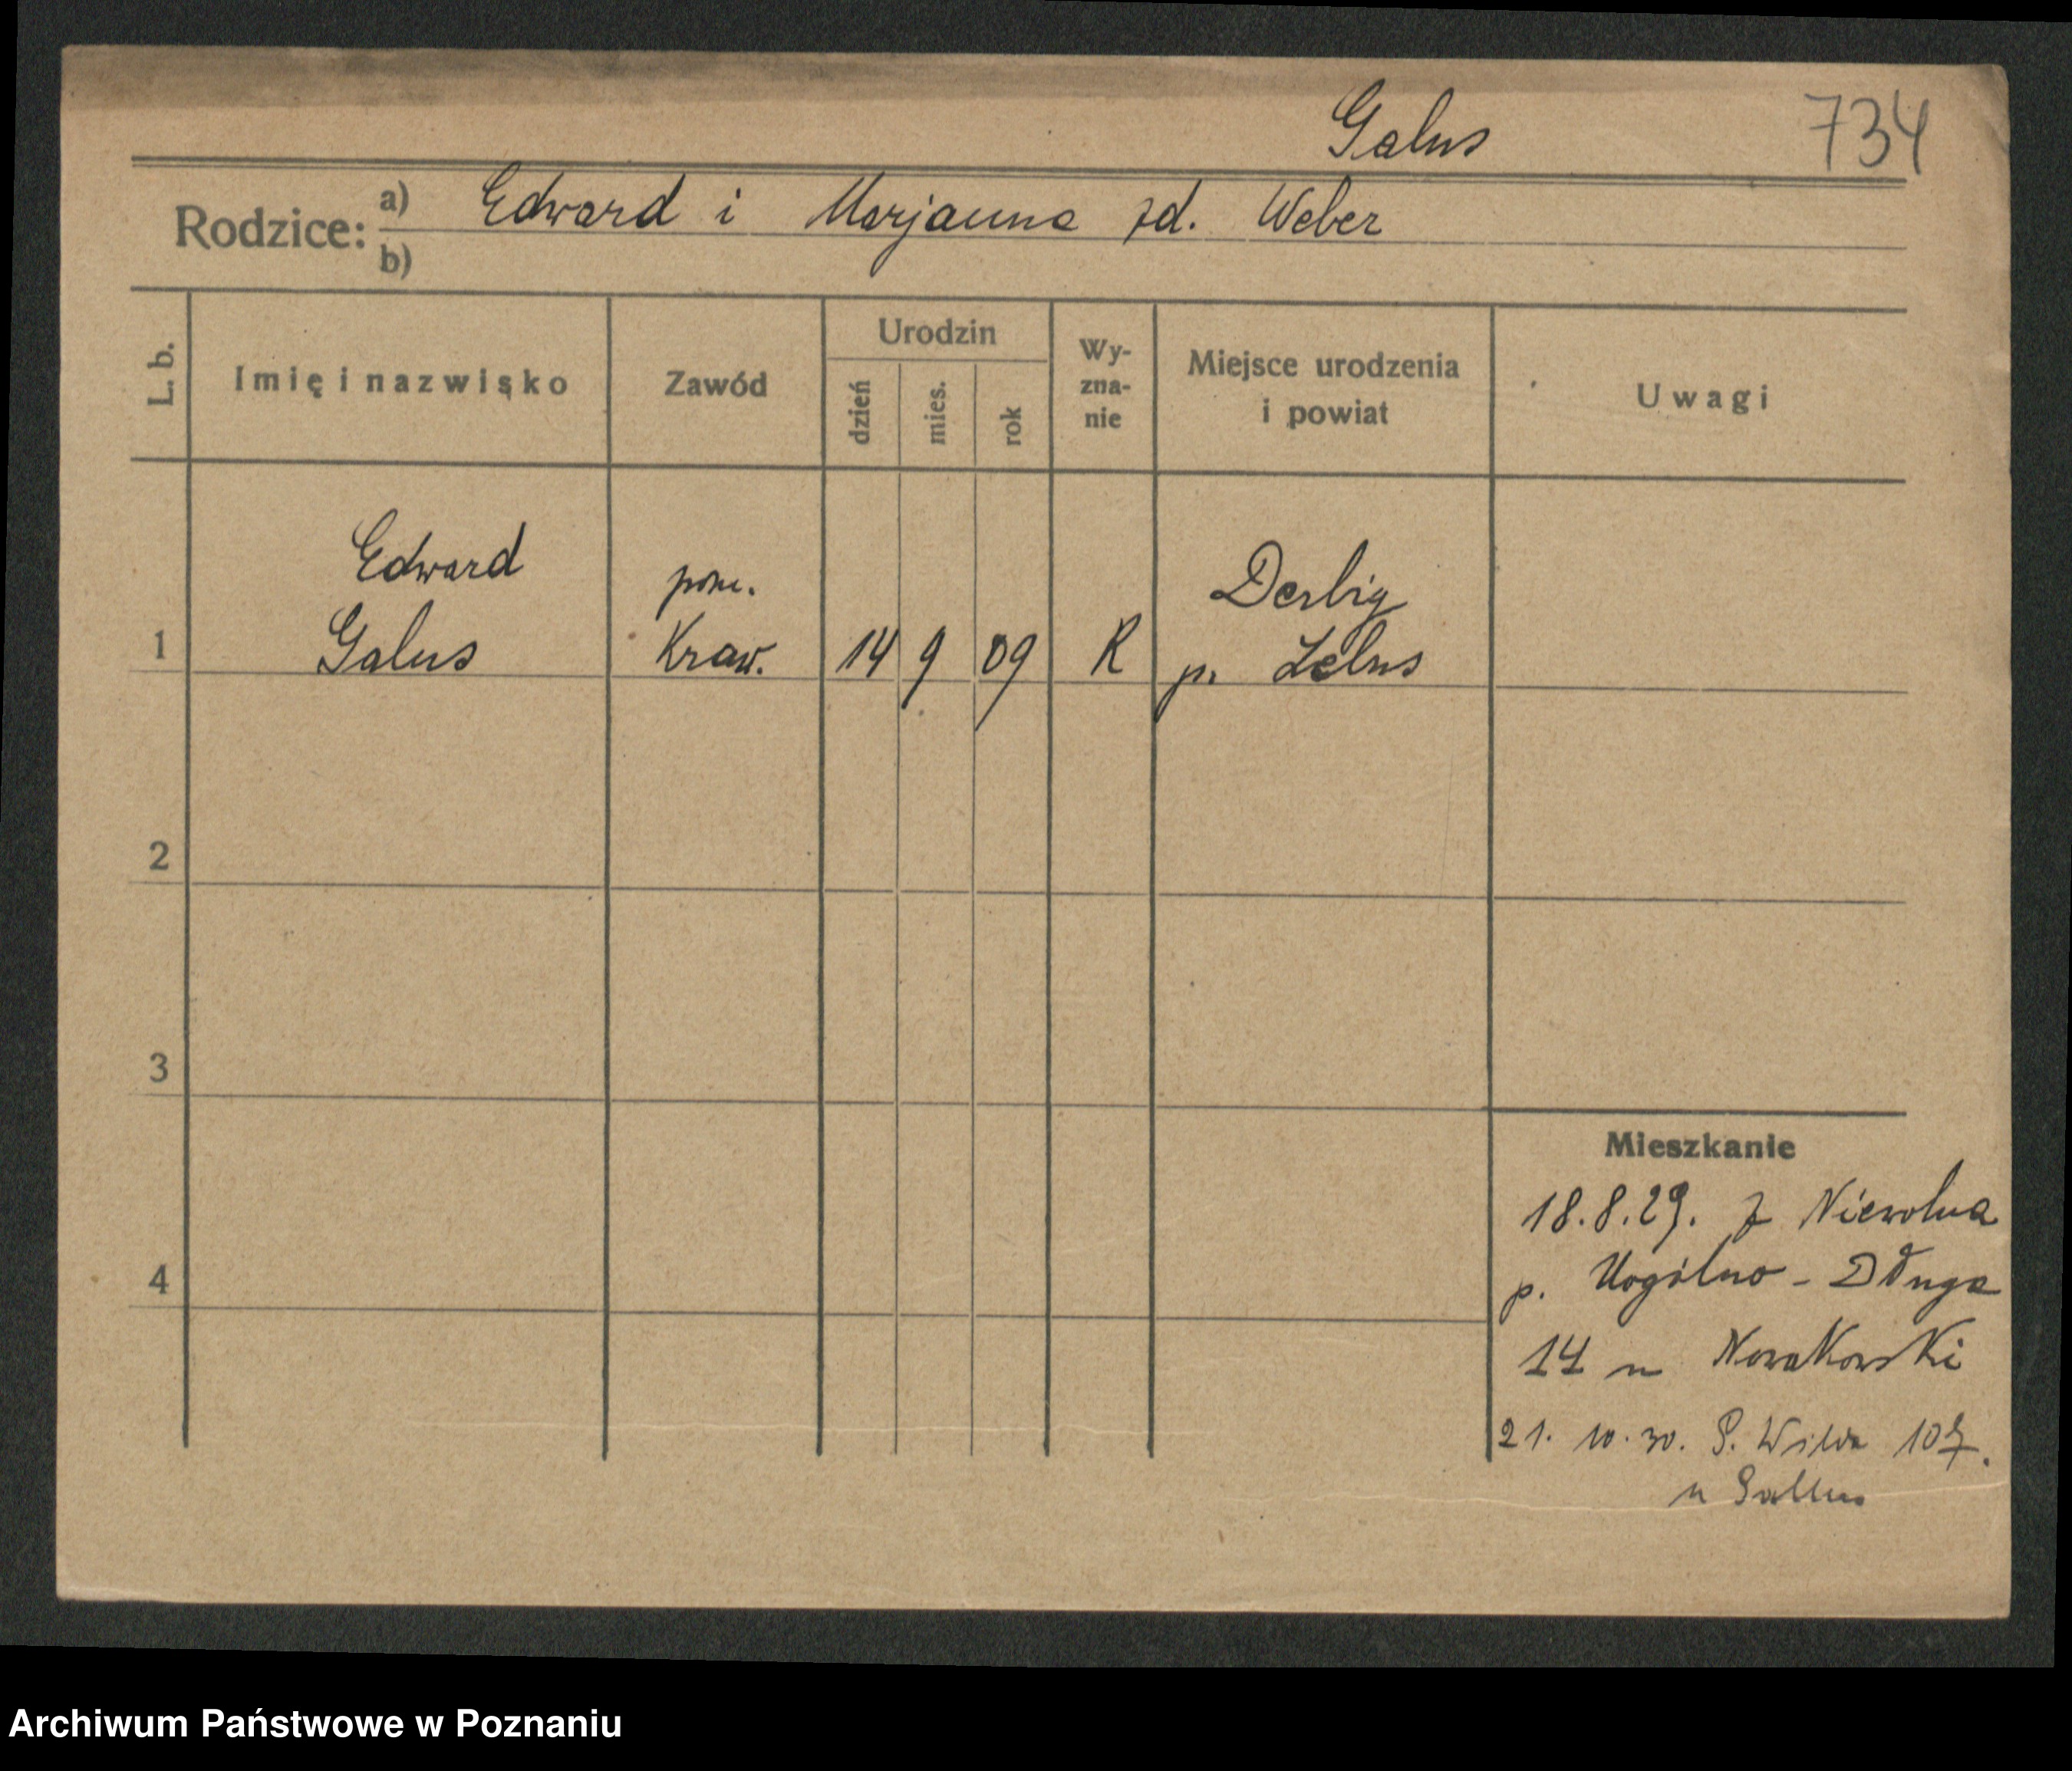 Galus 734
Rodzice: a) Edward i Marjanna zd. Weber
b)
L. b. Imię i nazwisko Zawód Urodzin dzień mies. rok Wy-zna-nie Miejsce urodzenia i powiat Uwagi
Edward pom. Derbig
1 Galus Kraw. 14 9 09 R p. Lelus
2
3
Mieszkanie
18.8.29. z Niewolna
4 p. Mogilno - Długa
14 u Nowakowski
21. 10. 30. G. Wilda 107.
u Gallus
Archiwum Państwowe w Poznaniu